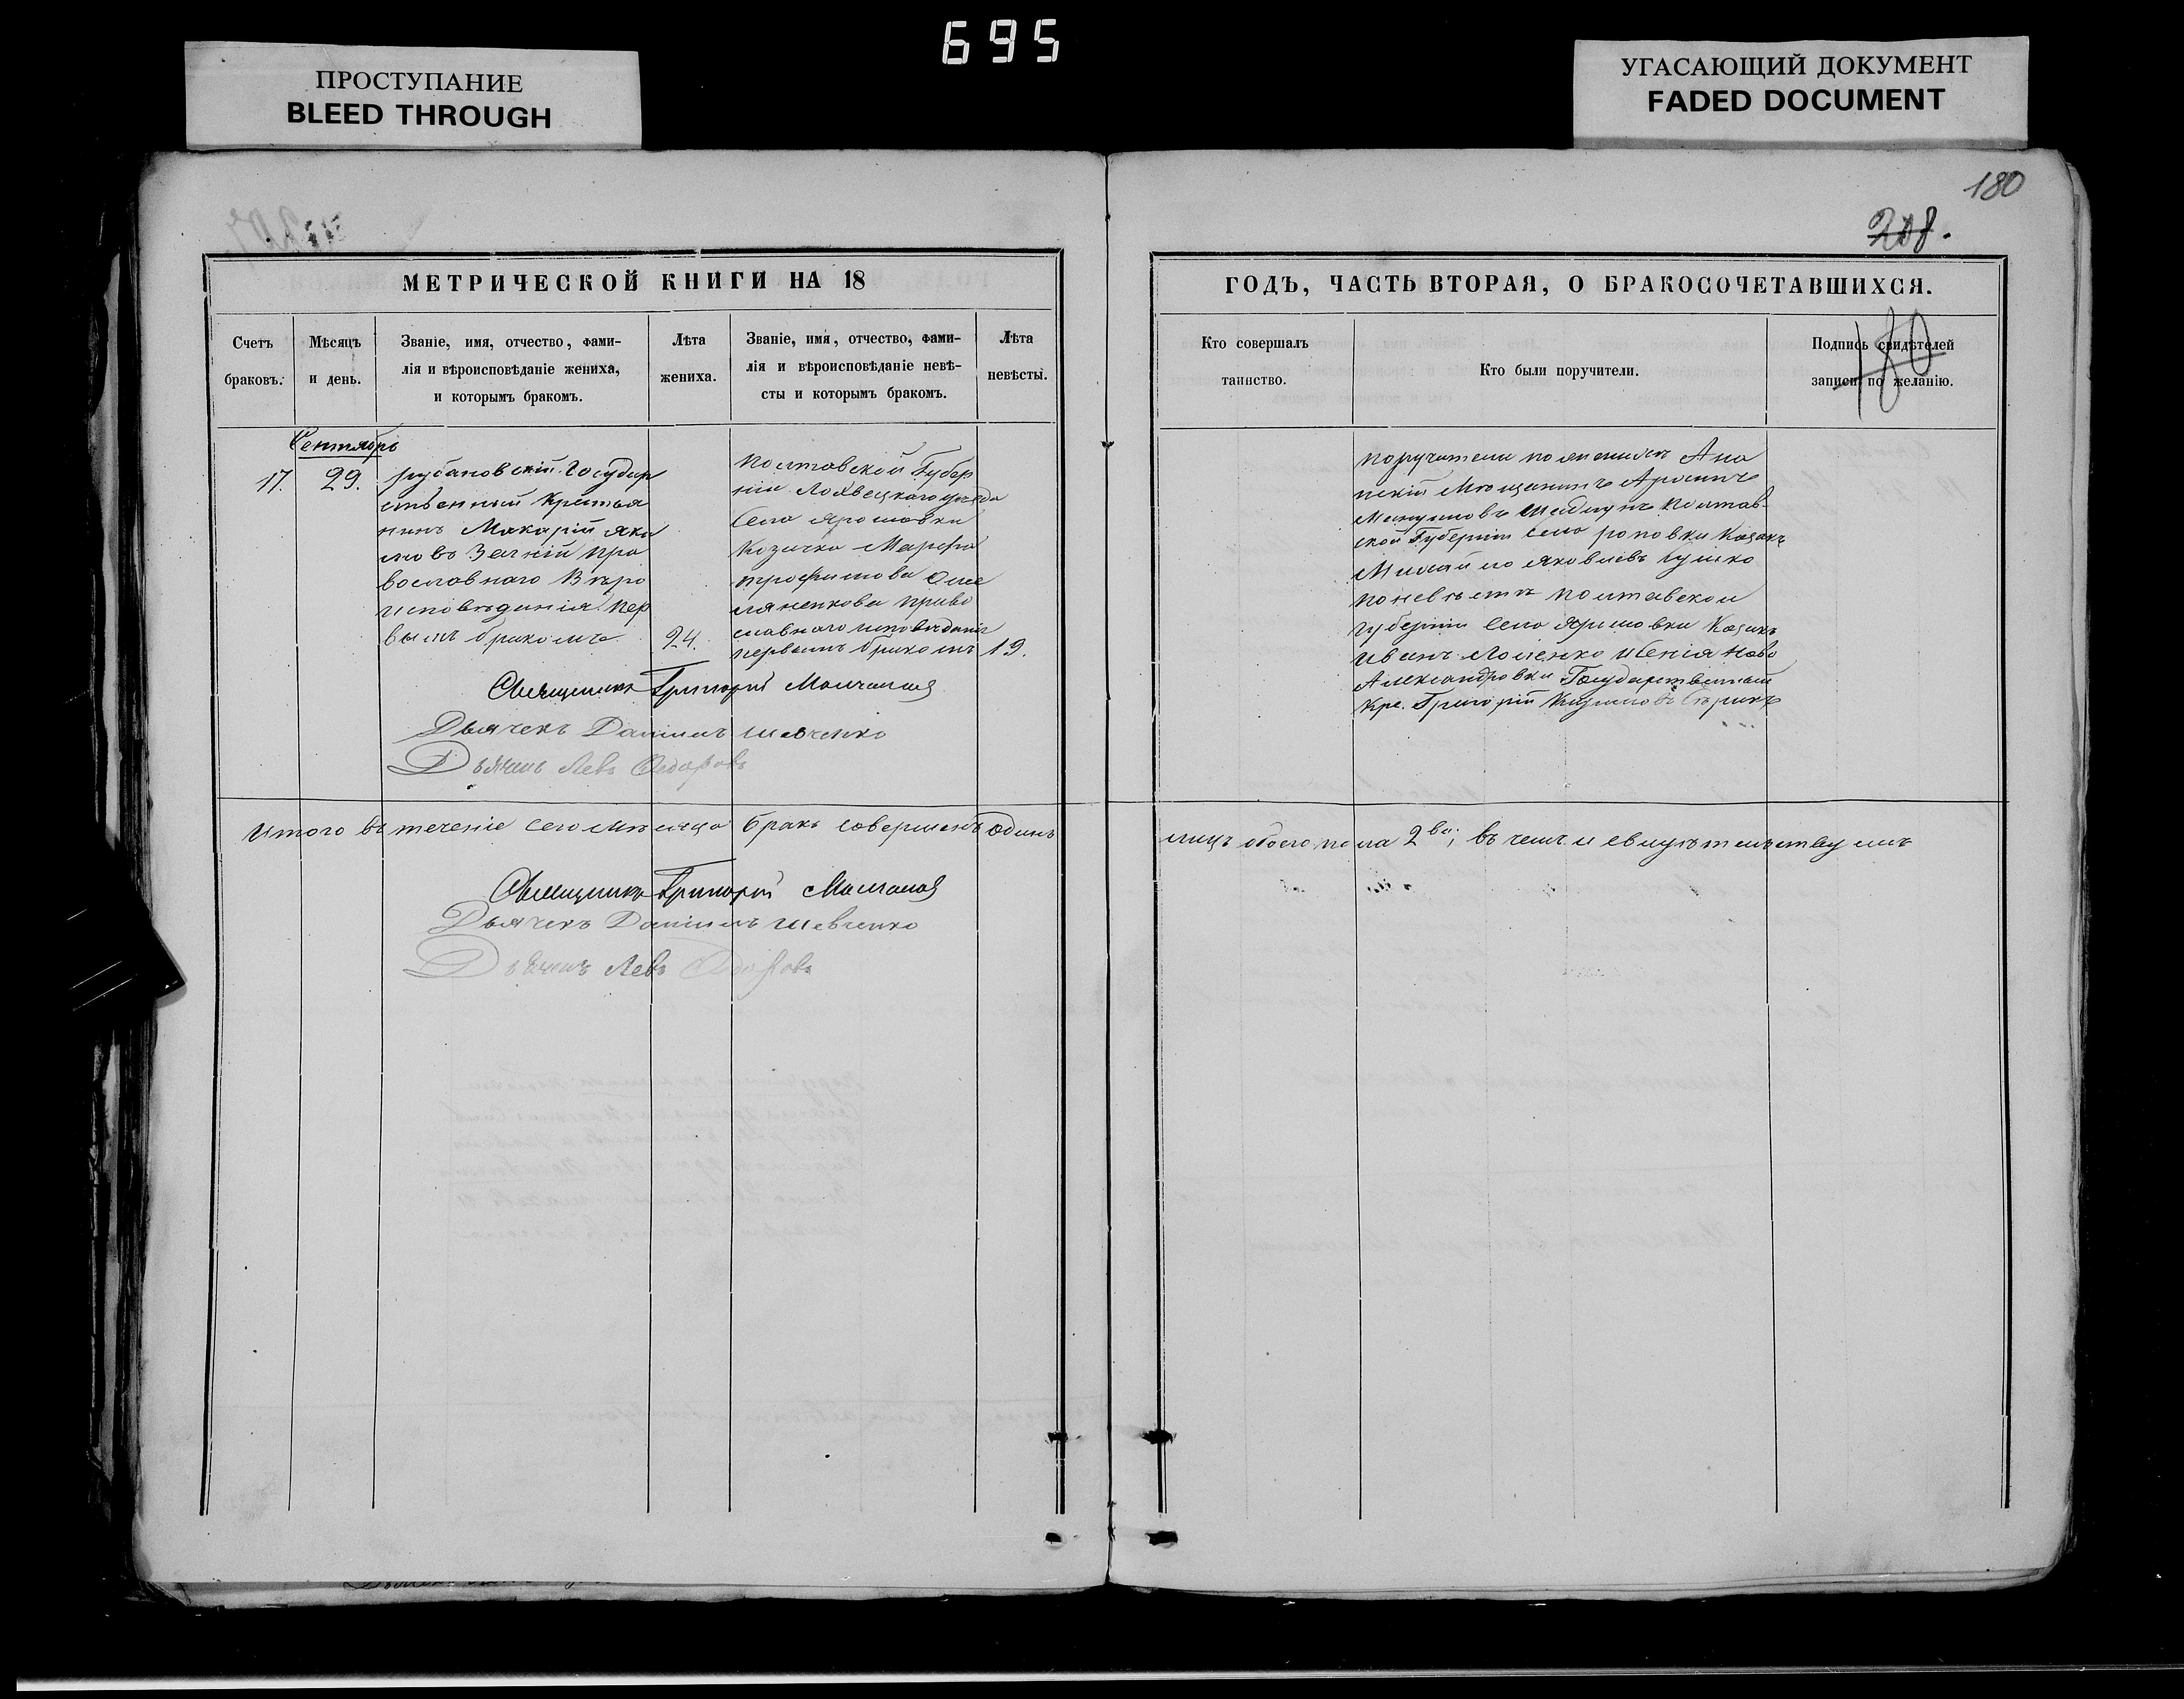 695
ПРОСТУПАНИЕ
BLEED THROUGH
УГАСАЮЩИЙ ДОКУМЕНТ
FADED DOCUMENT
180
208.
МЕТРИЧЕСКОЙ КНИГИ НА 18
Счетъ браковъ.
Мѣсяцъ и день.
Званіе, имя, отчество, фами-
лія и вѣроисповѣданіе жениха,
и которымъ бракомъ.
Лѣта жениха.
Званіе, имя, отчество, фами-
лія и вѣроисповѣданіе невѣ-
сты и которымъ бракомъ.
Лѣта невѣсты.
Сентябрь
17.
29.
рубановскій Государ
ственный крестья
нинъ Макарій Яки
мовъ пра
вославнаго Вѣро
исповѣданія пер
вымъ бракомъ
24.
Полтавской Губер
ніи Лохвецкаго уѣзда
Села Ярошовки
Козачка Марфа
Трофимова Оме
ляненкова право
славнаго исповѣданія
первымъ бракомъ
19.
Священникъ Григорій
Дьячекъ Даніилъ Шевченко
Дьячекъ Левъ Федоровъ
Итого въ теченіе сего мѣсяца бракъ совершенъ одинъ
Священникъ Григорій
Дьячекъ Даніилъ Шевченко
Дьячекъ Левъ
ГОДЪ, ЧАСТЬ ВТОРАЯ, О БРАКОСОЧЕТАВШИХСЯ.
Кто совершалъ таинство.
Кто были поручители.
Подпись свидѣтелей записи по желанію.
180
поручители по женихѣ Ана
пскій Мѣщанинъ
Полтав-
ской Губерніи Села Козакъ
Яковлевъ
по невѣстѣ Полтавской
Губерніи Села Ярошовки Козакъ
Иванъ Ново
Александровки Государственный
Кре. Григорій
лицъ обоего пола 2ва, въ чемъ и свидѣтельствуемъ